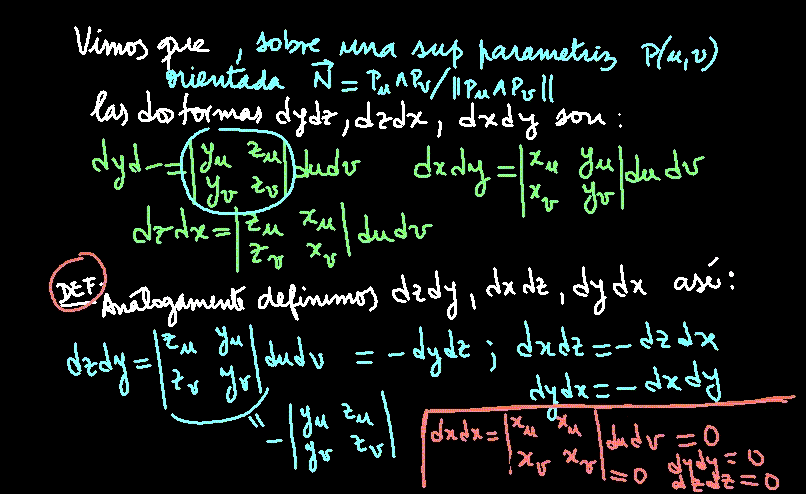 Vimos que, sobre una sup parametriz P(u,v)
orientada N⃗ = Pu ∧ Pv / ||Pu ∧ Pv||
las dos formas dydz, dzdx, dxdy son:
dyd– = |yu zu; yv zv| dudv    dxdy = |xu yu; xv yv| du dv
dzdx = |zu xu; zv xv| dudv
DEF. Análogamente definimos dzdy, dxdz, dydx así:
dzdy = |zu yu; zv yv| dudv = -dydz ; dxdz = -dzdx
dydx = -dxdy
" -|yu zu; yv zv|
dxdx = |xu xu; xv xv| dudv = 0
= 0 dydy = 0
dzdz = 0